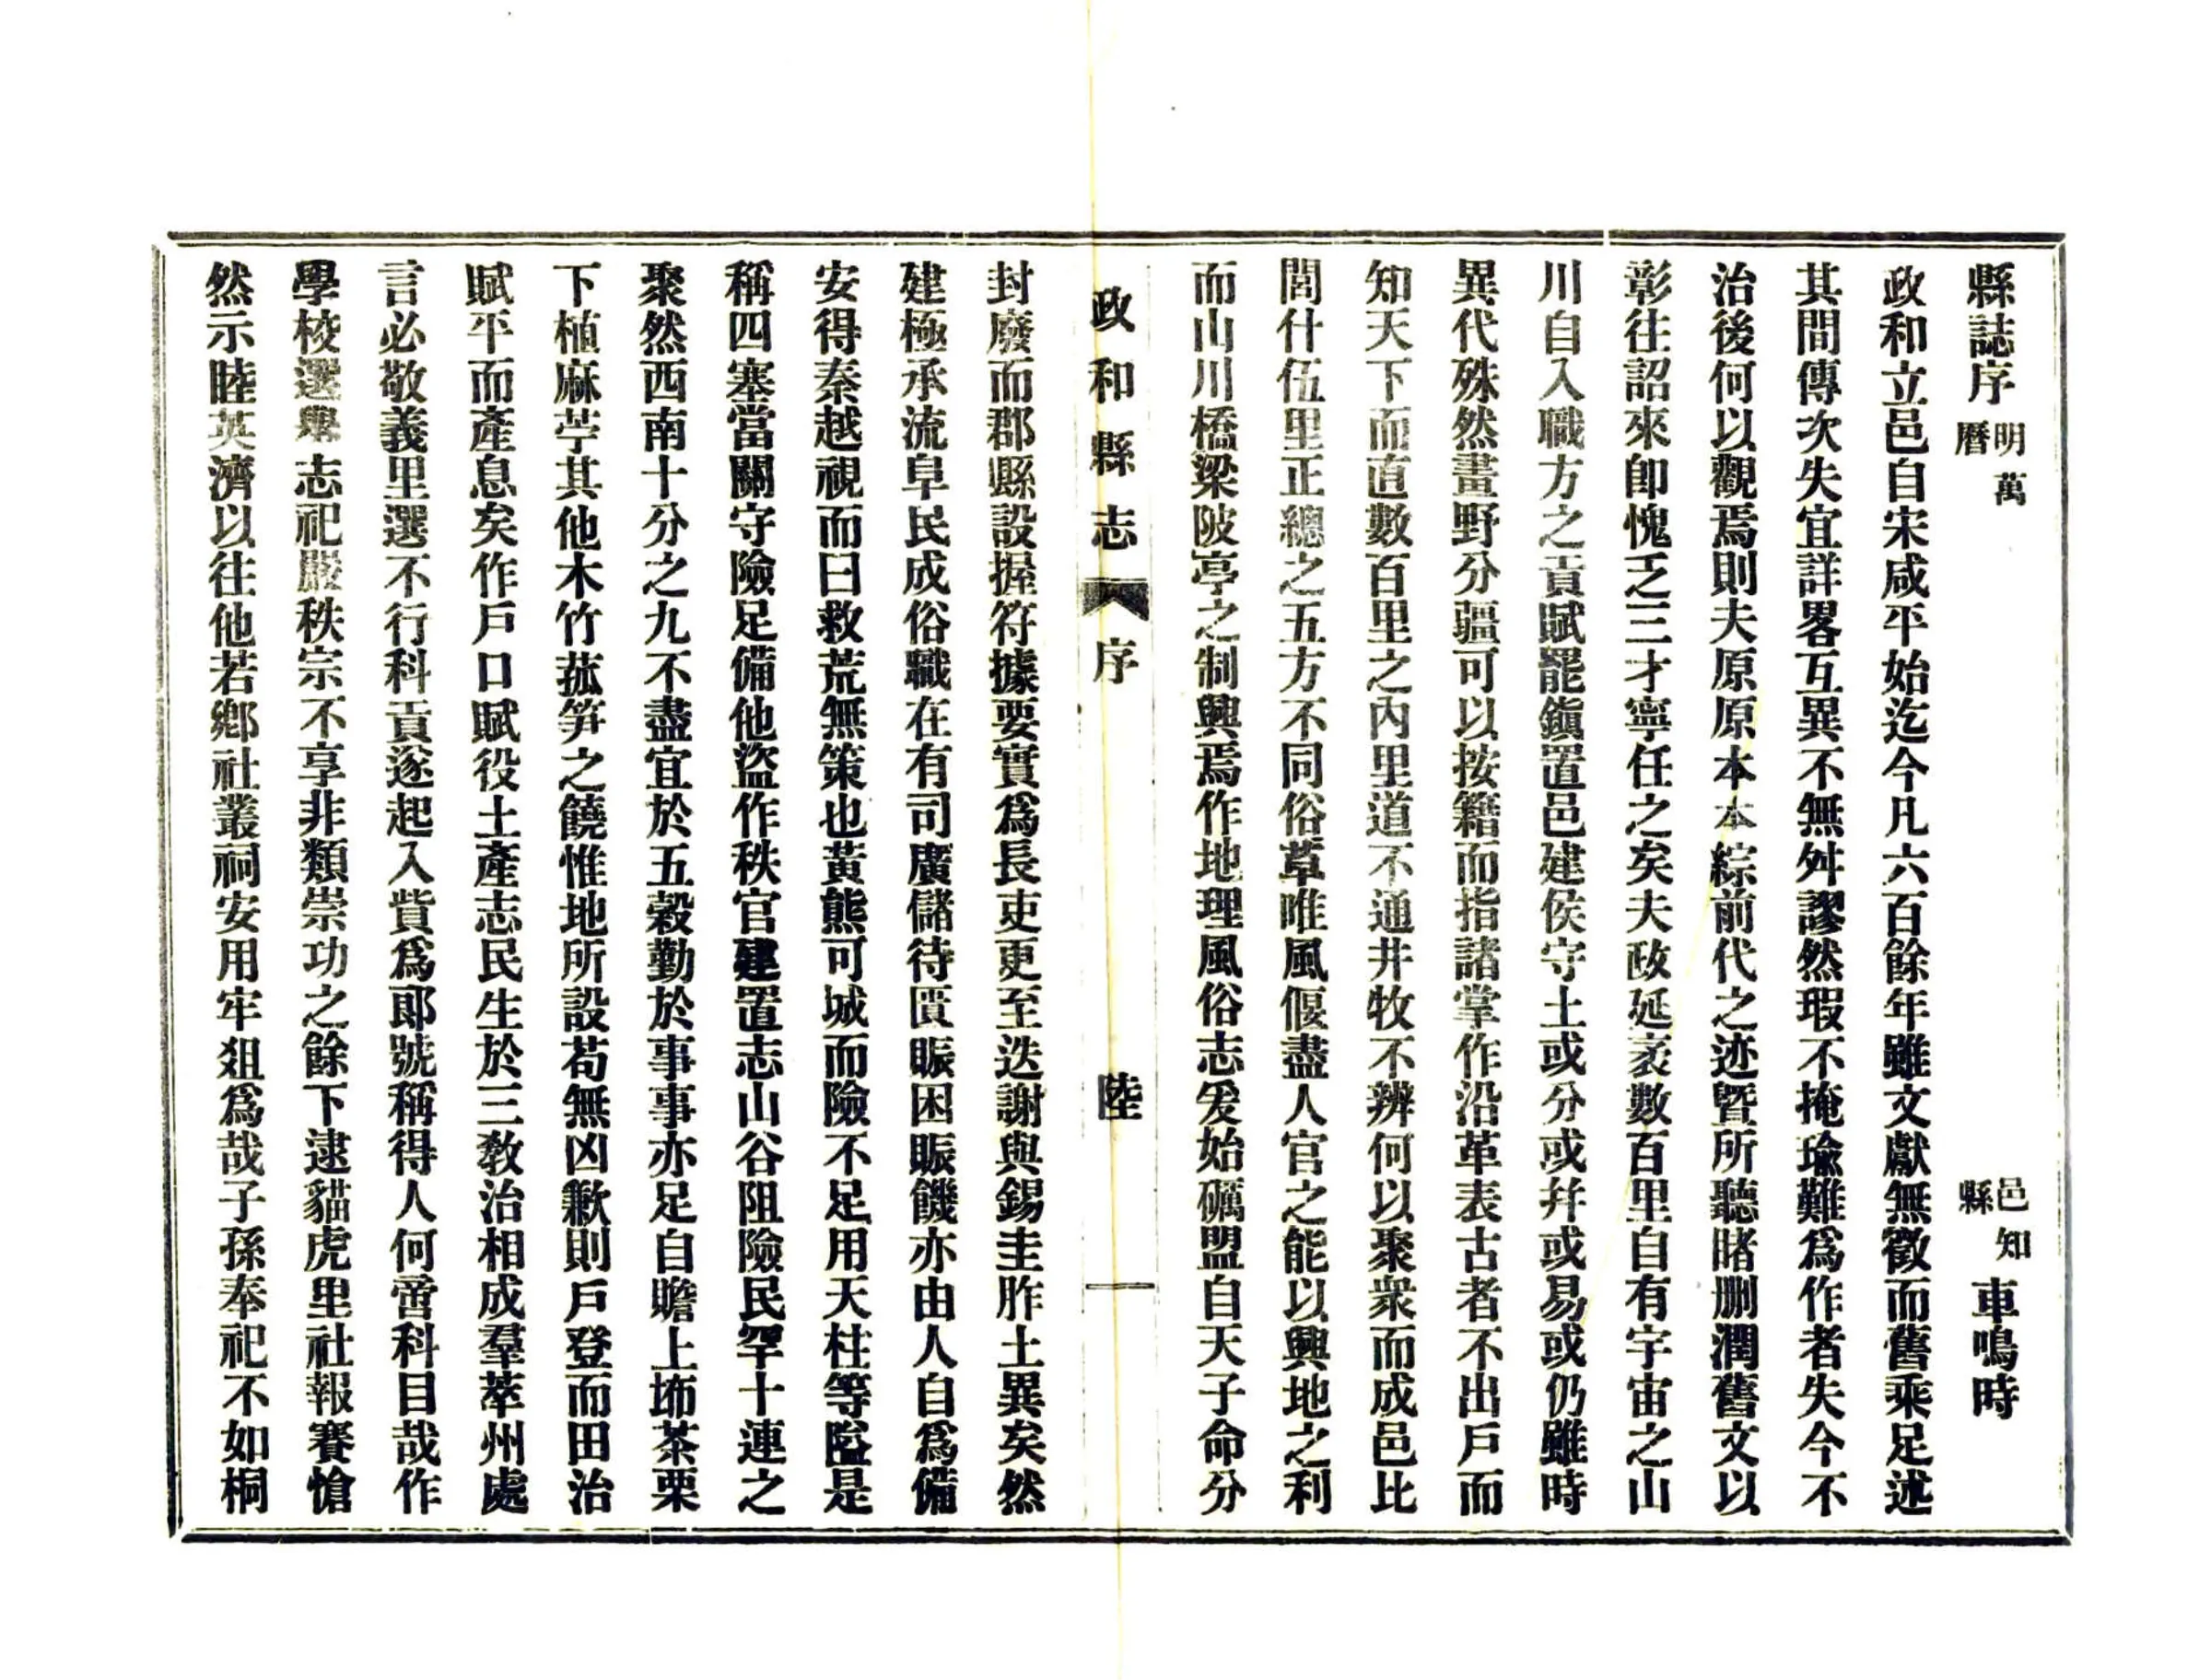 縣誌序 明萬曆 邑知縣 車鳴時
政和立邑自宋咸平始迄今凡六百餘年雖文獻無徵而舊乘足述
其間傳次失宜詳畧互異不無舛謬然瑕不掩瑜難爲作者失今不
治後何以觀焉則夫原原本本綜前代之迹曁所聽睹刪潤舊文以
彰往詔來卽愧乏三才寧任之矣夫政延袤數百里自有宇宙之山
川自入職方之貢賦罷鎭置邑建侯守土或分或幷或易或仍雖時
異代殊然畫野分疆可以按籍而指諸掌作沿革表古者不出戶而
知天下而直數百里之內里道不通井牧不辨何以聚衆而成邑比
閭什伍里正總之五方不同俗草唯風偃盡人官之能以興地之利
而山川橋梁陂亭之制興焉作地理風俗志爰始礪盟自天子命分
政和縣志 序 陸 一
封廢而郡縣設握符據要實爲長吏更至迭謝與錫圭胙土異矣然
建極承流阜民成俗職在有司廣儲待匱賑困賑饑亦由人自爲備
安得秦越視而曰救荒無策也黃熊可城而險不足用天柱等隘是
稱四塞當關守險足備他盜作秩官建置志山谷阻險民罕十連之
聚然西南十分之九不盡宜於五穀勤於事事亦足自贍上㘵茶栗
下植麻苧其他木竹菰笋之饒惟地所設苟無凶歉則戶登而田治
賦平而產息矣作戶口賦役土產志民生於三敎治相成羣萃州處
言必敬義里選不行科貢遂起入貲爲郞號稱得人何啻科目哉作
學校選舉志祀嚴秩宗不享非類崇功之餘下逮貓虎里社報賽愴
然示睦英濟以往他若鄉社叢祠安用牢俎爲哉子孫奉祀不如桐